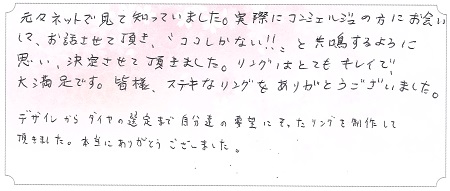 元々ネットで見て知っていました。実際にコンシェルジュの方にお会い
して、お話させて頂き、“ココしかない!!”と共鳴するように
思い、決定させて頂きました。リングはとてもキレイで
大満足です。皆様、ステキなリングをありがとうございました。
デザインからダイヤの選定まで自分達の要望にそったリングを制作して
頂きました。本当にありがとうございました。